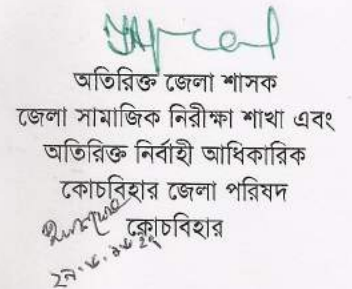 অতিরিক্ত জেলা শাসক
জেলা সামাজিক নিরীক্ষা শাখা এবং
অতিরিক্ত নির্বাহী আধিকারিক
কোচবিহার জেলা পরিষদ
কোচবিহার